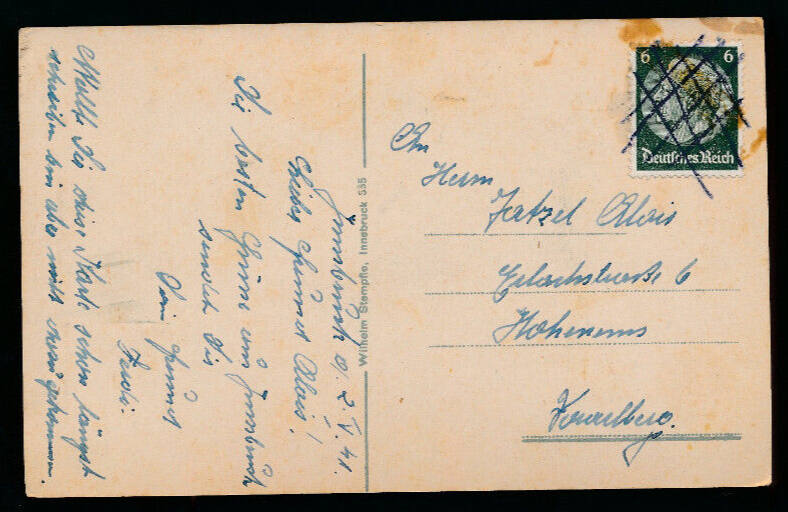 Innsbruck 2.V.41.
Lieber Freund Alois!
Die besten Grüsse aus Innsbruck
sendet Dir
Dein Freund
Ferdi.
Wollte Dir diese Karte schon längst
schreiben bin aber nicht dazu gekommen.
Wilhelm Stempfle, Innsbruck 535
6 6
Deutsches Reich
An
Herrn
Alois
6
Hohenems
Vorarlberg.